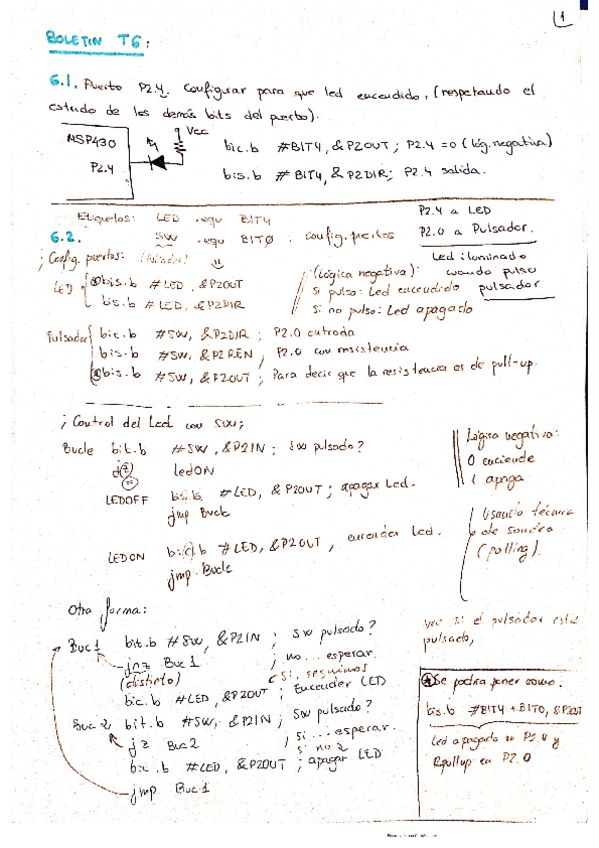 1
BOLETIN T6:
6.1. Puerto P2.4. Configurar para que led encendido, (respetando el
estado de los demás bits del puerto).
Vcc
MSP430
P2.4
bic.b #BIT4, &P2OUT ; P2.4 =0 (lóg. negativa)
bis.b #BIT4, &P2DIR; P2.4 salida.
Etiquetas: LED .equ BIT4
SW .equ BIT0
6.2.
. Config. puertos
P2.4 a LED
P2.0 a Pulsador.
; Config. puertos:
Led iluminado
cuando pulso
pulsador
LED
bis.b #LED, &P2OUT
bis.b #LED, &P2DIR
(Lógica negativa):
Si pulso: Led encendido
Si no pulso: Led apagado
Pulsador
bic.b #SW, &P2DIR ; P2.0 entrada
bis.b #SW, &P2REN ; P2.0 con resistencia
bis.b #SW, &P2OUT ; Para decir que la resistencia es de pull-up.
; Control del Led con SW;
Bucle bit.b #SW, &P2IN ; ¿sw pulsado?
jz ledON
LEDOFF bis.b #LED, &P2OUT ; apagar Led.
jmp Bucle
LEDON bic.b #LED, &P2OUT , encender Led.
jmp Bucle
Lógica negativa:
0 enciende
1 apaga
Usando técnica
de sondeo
(polling).
Otra forma:
Buc1 bit.b #SW, &P2IN ; SW pulsado?
jnz Buc1 ; no... esperar.
(distinto) ; si.. seguimos
bic.b #LED, &P2OUT ; Encender LED
Buc2 bit.b #SW, &P2IN ; SW pulsado?
jz Buc2 ; si ... esperar.
; si no
#LED, &P2OUT ; apagar LED
jmp Buc1
ver si el pulsador está
pulsado,
Se podría poner como:
bis.b #BIT4 + BIT0, &P2OUT
Led apagado en P2.4 y
Rpullup en P2.0